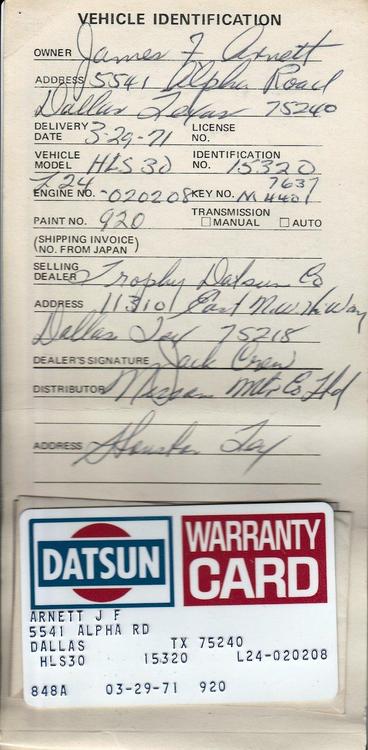 VEHICLE IDENTIFICATION
OWNER James F Arnett
ADDRESS 5541 Alpha Road
Dallas Texas 75240
DELIVERY DATE 3-29-71 LICENSE NO.
VEHICLE MODEL HLS30 IDENTIFICATION NO. 15320
L24 7637
ENGINE NO. -020208 KEY NO. M4401
PAINT NO. 920 TRANSMISSION ☐ MANUAL ☐ AUTO
(SHIPPING INVOICE)
(NO. FROM JAPAN)
SELLING DEALER Trophy Datsun Co
ADDRESS 11310 East N.W. Hiway
Dallas Tex 75218
DEALER'S SIGNATURE Jack Crew
DISTRIBUTOR Nissan Mtr Co Ltd
ADDRESS Houston Tex
DATSUN WARRANTY CARD
ARNETT J F
5541 ALPHA RD
DALLAS TX 75240
HLS30 15320 L24-020208
848A 03-29-71 920